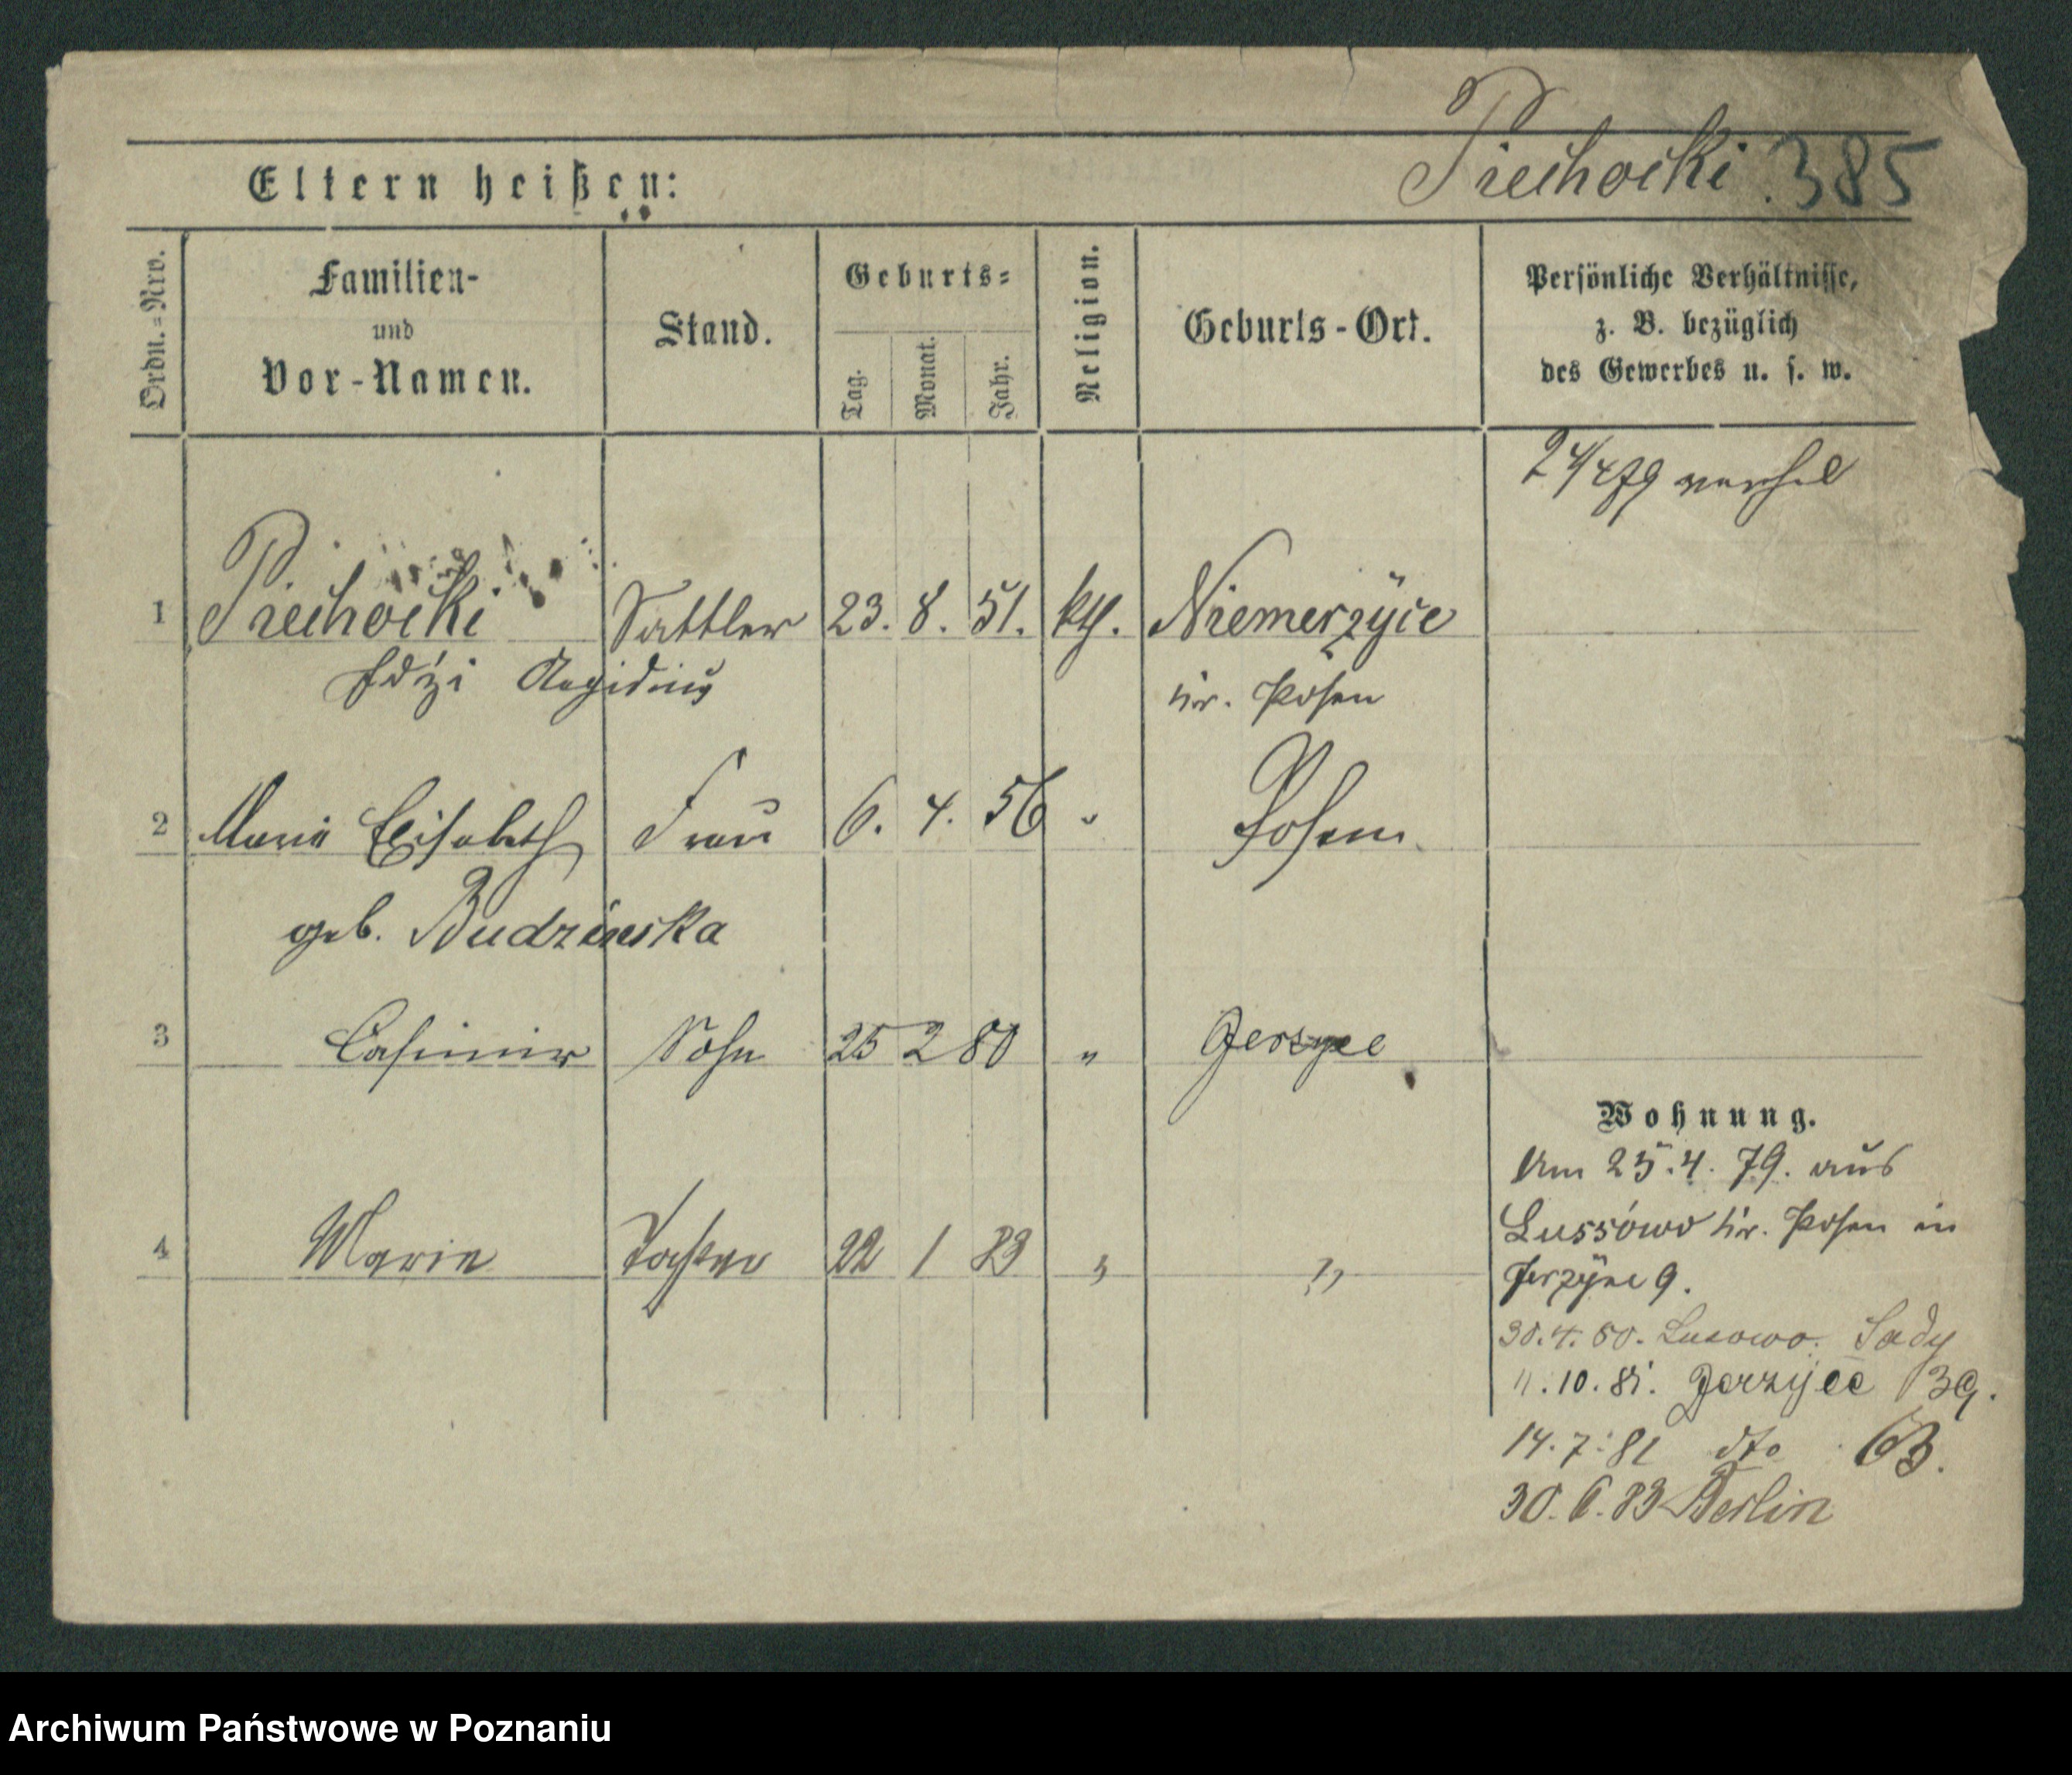 Piechocki. 385
Eltern heißen:
Ordn.-Nro.
Familien-
und
Vor-Namen.
Stand.
Geburts-
Tag. Monat. Jahr.
Religion.
Geburts-Ort.
Persönliche Verhältnisse,
z. B. bezüglich
des Gewerbes u. s. w.
24/4 79
1 Piechocki Sattler 23. 8. 51. kth. Niemerzÿce
Idzi Aegidius Kr. Posen
2 Marie Elisabeth Frau 6. 4. 56 " Posen
geb. Budzinska
3 Casimir Sohn 25 2 80 " Jerzyce
4 Marie Tochter 22 1 83 " "
Wohnung.
Am 25.4.79. aus
Lussówo Kr. Posen in
Jerzÿce 9.
30.4.80. Lusowo. Sady
11.10.81. Jerzyce 39.
14.7.82 dto 63.
30.6.83 Berlin
Archiwum Państwowe w Poznaniu